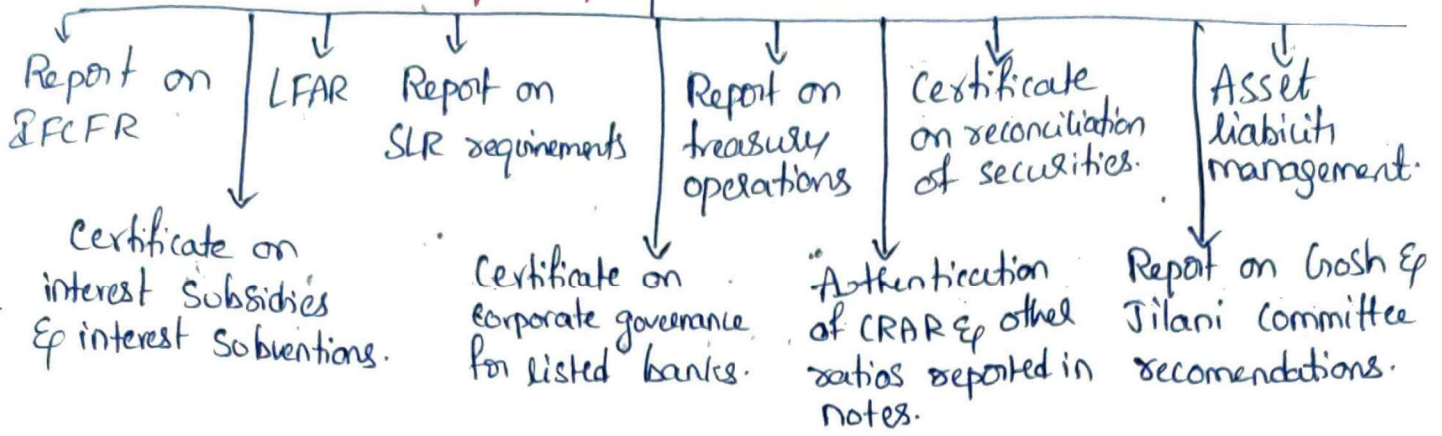 Report on
IFCFR
LFAR
Report on
SLR requirements
Report on
treasury
operations
Certificate
on reconciliation
of securities.
Asset
liability
management.
Certificate on
interest Subsidies
& interest Subventions.
Certificate on
corporate governance
for listed banks.
Authentication
of CRAR & other
ratios reported in
notes.
Report on Gosh &
Jilani Committee
recomendations.